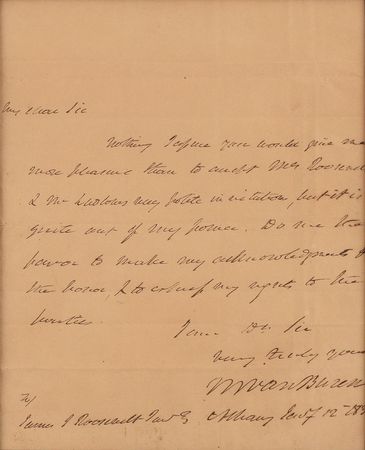 My dear Sir
Nothing I assure you would give me
more pleasure than to accept Mrs Roosevelt
& Mr Ludlows very polite invitation, but it is
quite out of my power. Do me the
favor to make my acknowledgments to
the honor, & to express my regrets to the
parties.
I am Dr Sir
very truly yours
M Van Buren
To
James J Roosevelt Jun Albany Jany 12